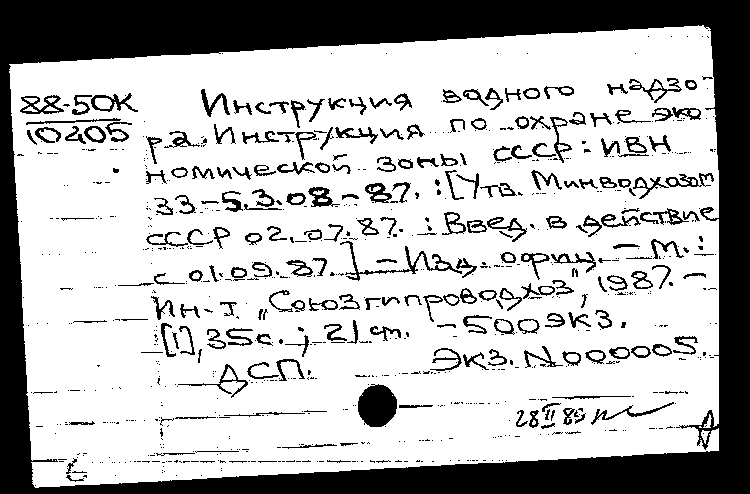 88-50К
10405
Инструкция водного надзо-
ра. Инструкция по охране эко-
номической зоны СССР : ИВН
33-5.3.08-87. : [Утв. Минводхозом
СССР 02.07.87. : Введ. в действие
с 01.09.87.] - Изд. офиц. - М. :
Ин-т „Союзгипроводхоз", 1987. -
[1], 35с. ; 21 см. - 500 экз.
ДСП. Экз. N000005.
28 II 89